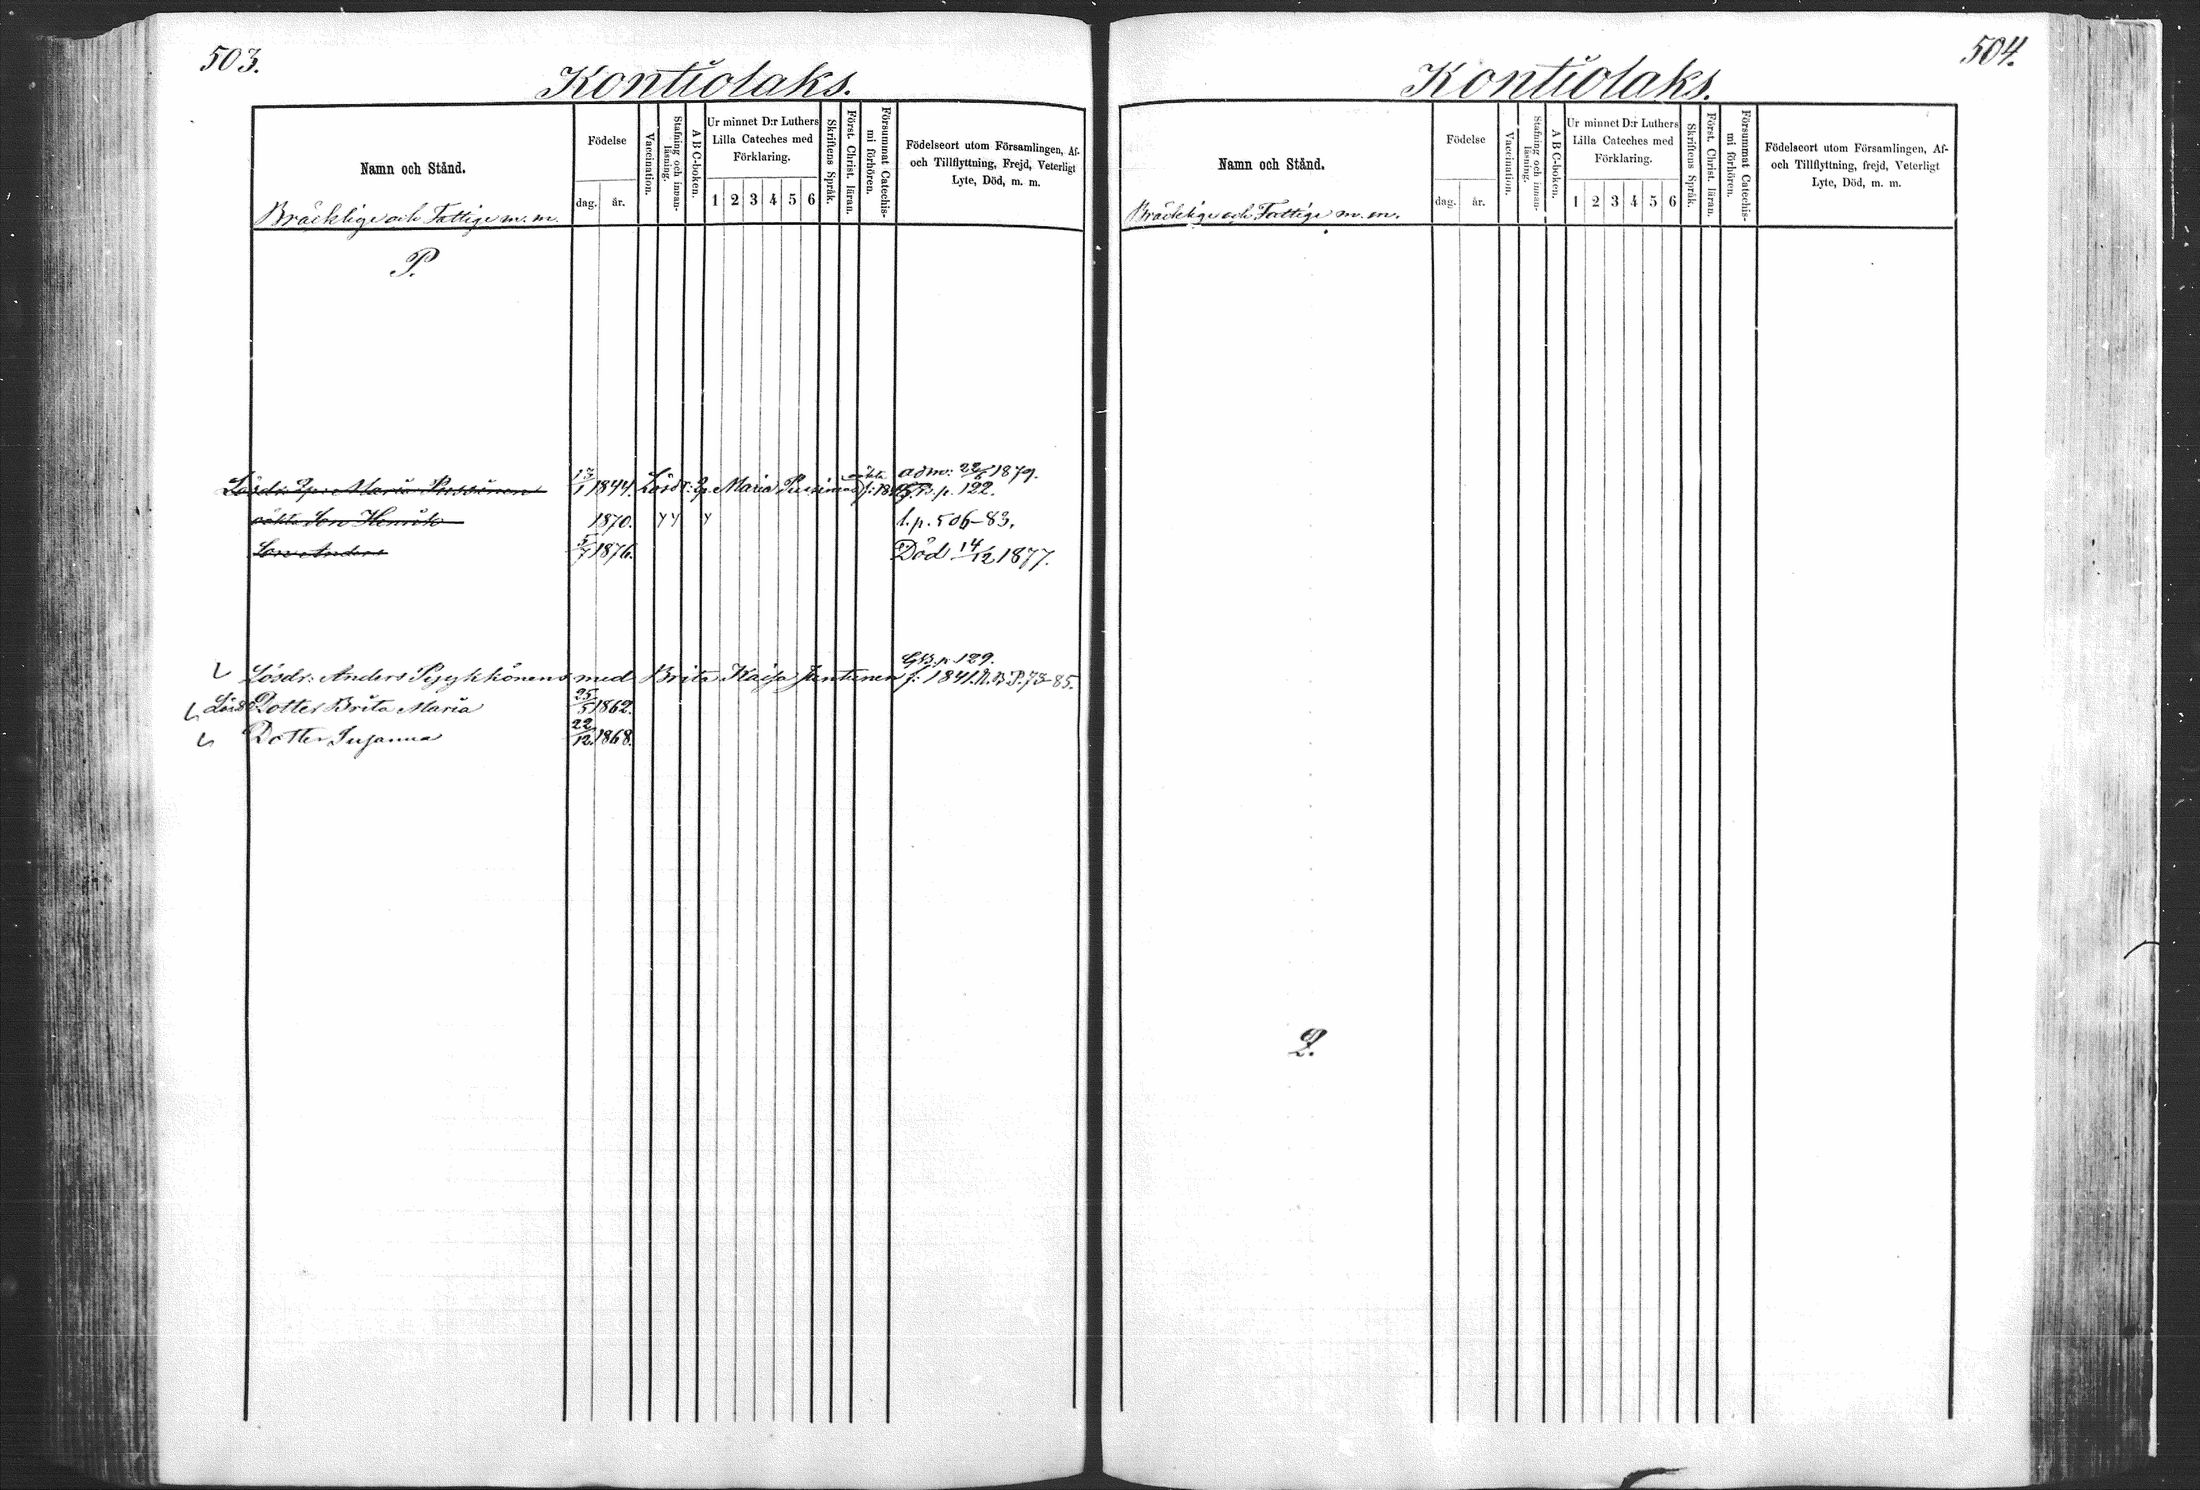 503.
Kontiolaks.
Namn och Stånd.
Bräcklige och Fattige m. m.
Födelse
dag.
år.
Vaccination.
Stafning och innan-
läsning.
A B C-boken.
Ur minnet D:r Luthers
Lilla Cateches med
Förklaring.
1 2 3 4 5 6
Skriftens Språk.
Först. Christ. läran.
Försummat Catechis-
mi förhören.
Födelseort utom Församlingen, Af-
och Tillflyttning, Frejd, Veterligt
Lyte, Död, m. m.
P.
adm: 22/6 1879.
Lösdr: Maria 13/1 1844. Lösdr: Maria p. 122.
oäkta Son Henrik 1870. y y y l. p. 506-83.
Son Anders 5/7 1876. Död 14/12 1877.
GB. p. 129.
Lösdr: Anders Pyykkönens med Brita Kaisa Jantunen f. 1841. N. B. P. 73-85.
Lösdr Dotter Brita Maria 25/5 1862.
Dotter Susanna 22/12 1868.
504.
Kontiolaks.
Namn och Stånd.
Bräcklige och Fattige m. m.
Födelse
dag.
år.
Vaccination.
Stafning och innan-
läsning.
A B C-boken.
Ur minnet D:r Luthers
Lilla Cateches med
Förklaring.
1 2 3 4 5 6
Skriftens Språk.
Först. Christ. läran.
Försummat Catechis-
mi förhören.
Födelseort utom Församlingen, Af-
och Tillflyttning, frejd, Veterligt
Lyte, Död, m. m.
Q.